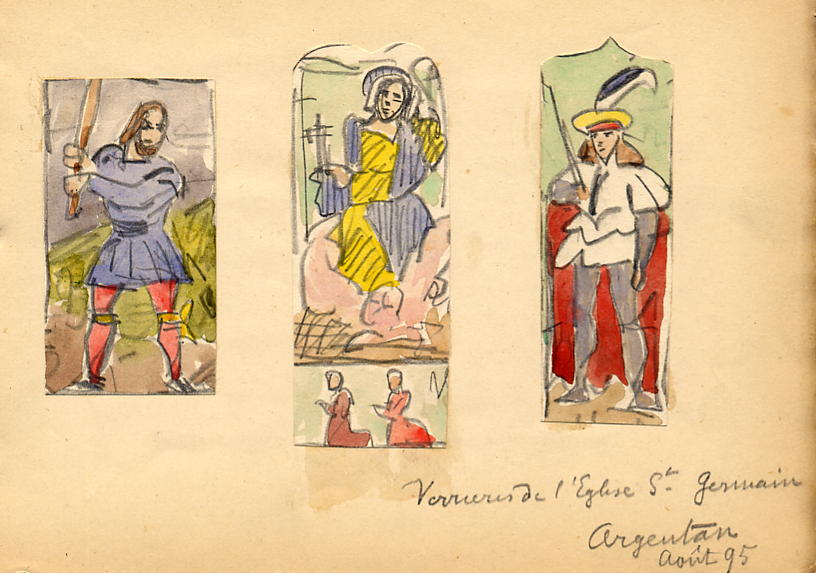 Verrieres de l'Eglise St Germain
Argentan
Août 95